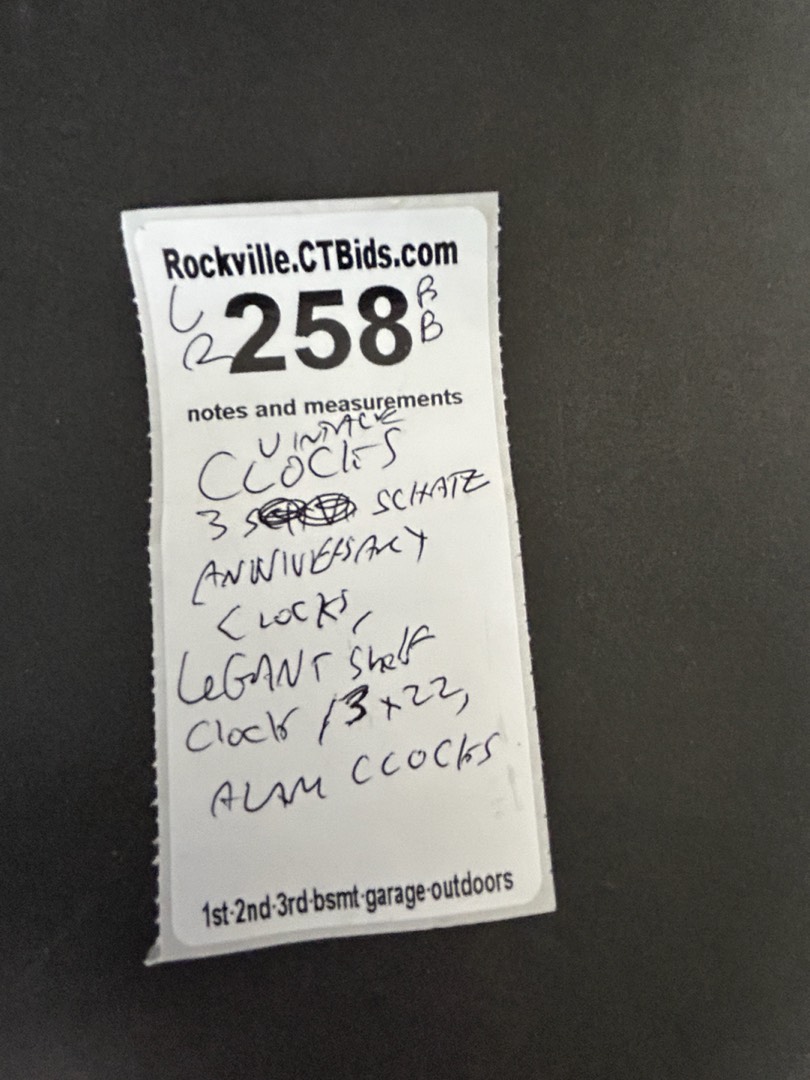 Rockville.CTBids.com
L R 258 B B
notes and measurements
VINTAGE
CLOCKS
3 SCHATZ
ANNIVERSARY
CLOCKS,
LeGANT Shelf
Clock 13 x 22,
ALAM CLOCKS
1st-2nd-3rd-bsmt-garage-outdoors